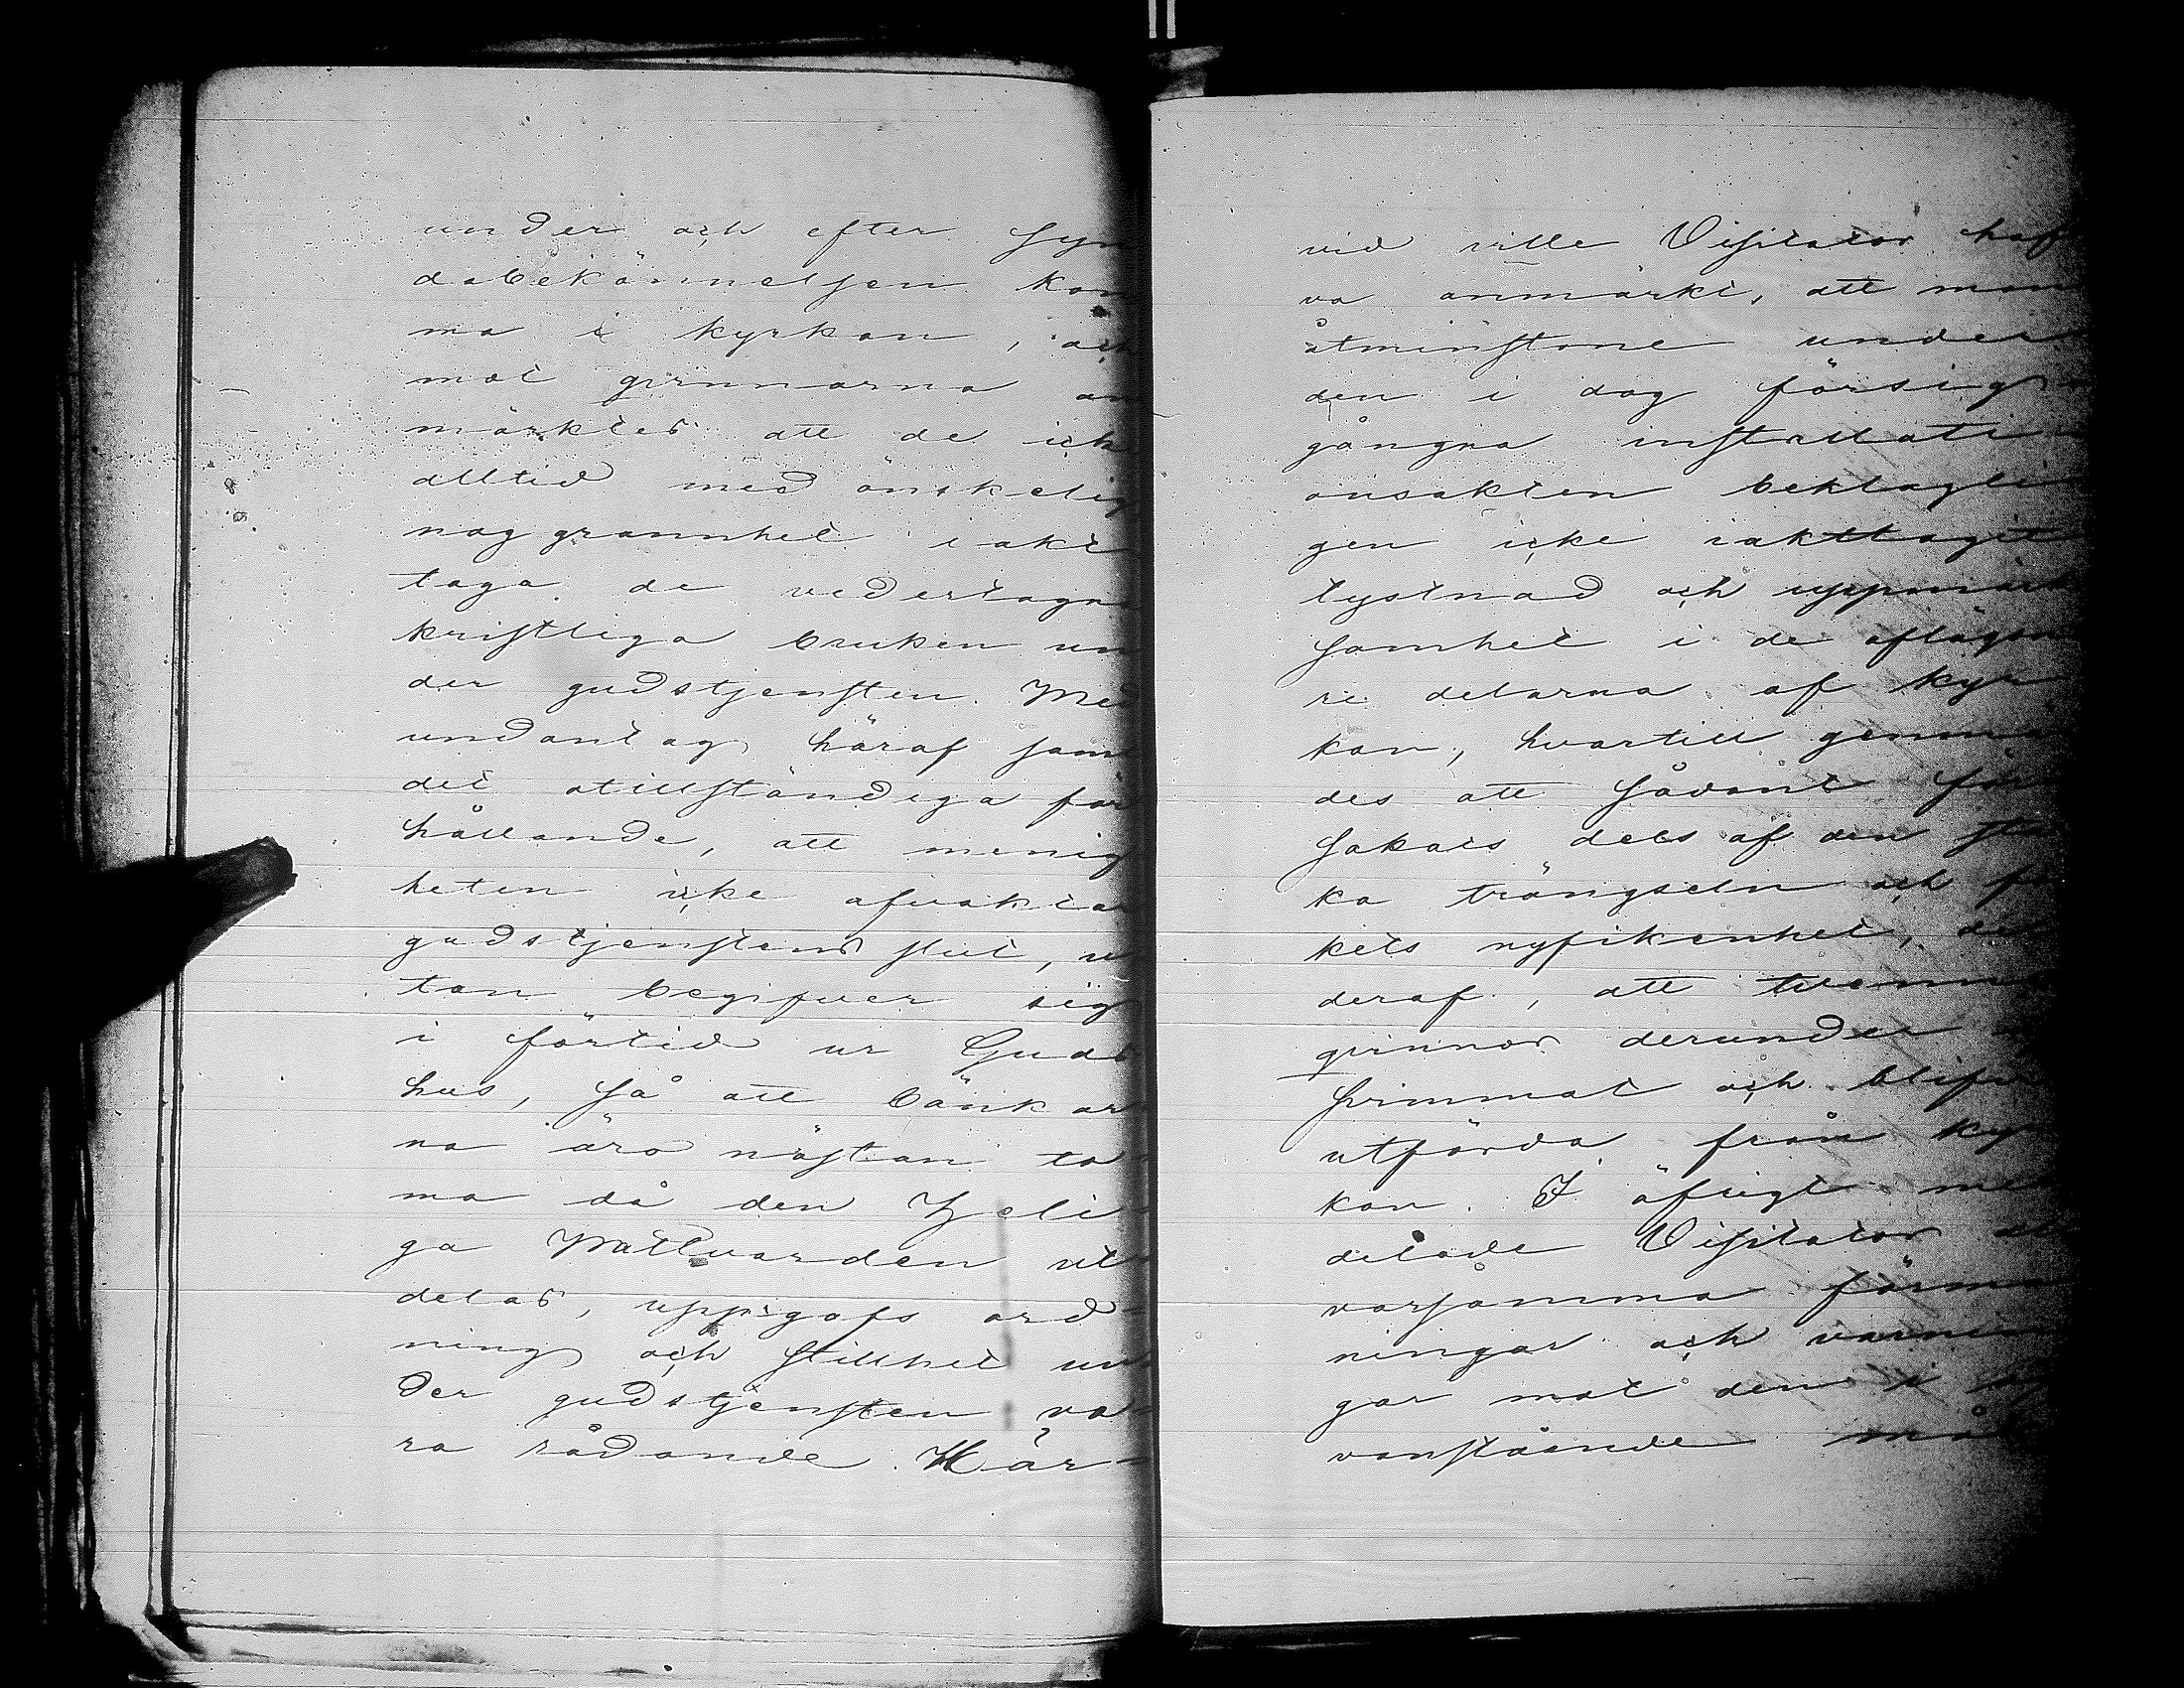 under och efter Syn
dabekännelsen kom
ma i kyrkan, och
mot qvinnorna an
märktes att de ick
alltid med önskelig
noggrannhet iakt
taga de vedertagna
kristliga bruken un
der gudstjensten. Med
undantag häraf sam
det otillständiga för
hållande, att menig
heten icke afvaktar
gudstjenstens slut, u
tan begifver sig
i förtid ur Guds
hus, så att bänkar
na äro nästan to-
ma då den Heli-
ga Nattvarden ut-
delas, uppgafs ord-
ning och stillhet un
der gudstjensten va-
ra rådande. Här-
vid ville Visitator haf
va anmärkt, att man
åtminstone under
den i dag försig
gångna installati
onsakten beklagli
gen icke iakttagit
tystnad och uppmärk
samhet i de aflägsna
re delarna af kyr
kan, hvartill genmä
des att sådant för
sakats dels af den sta
ka trängseln och fo
kets nyfikenhet, del
deraf, att tvenne
qvinnor derunder
svimmat och blifvit
utförda från kyr
kan. I öfrigt med
delade Visitator al
varsamma förma
ningar och varnin
gar mot den i of
vanstående må